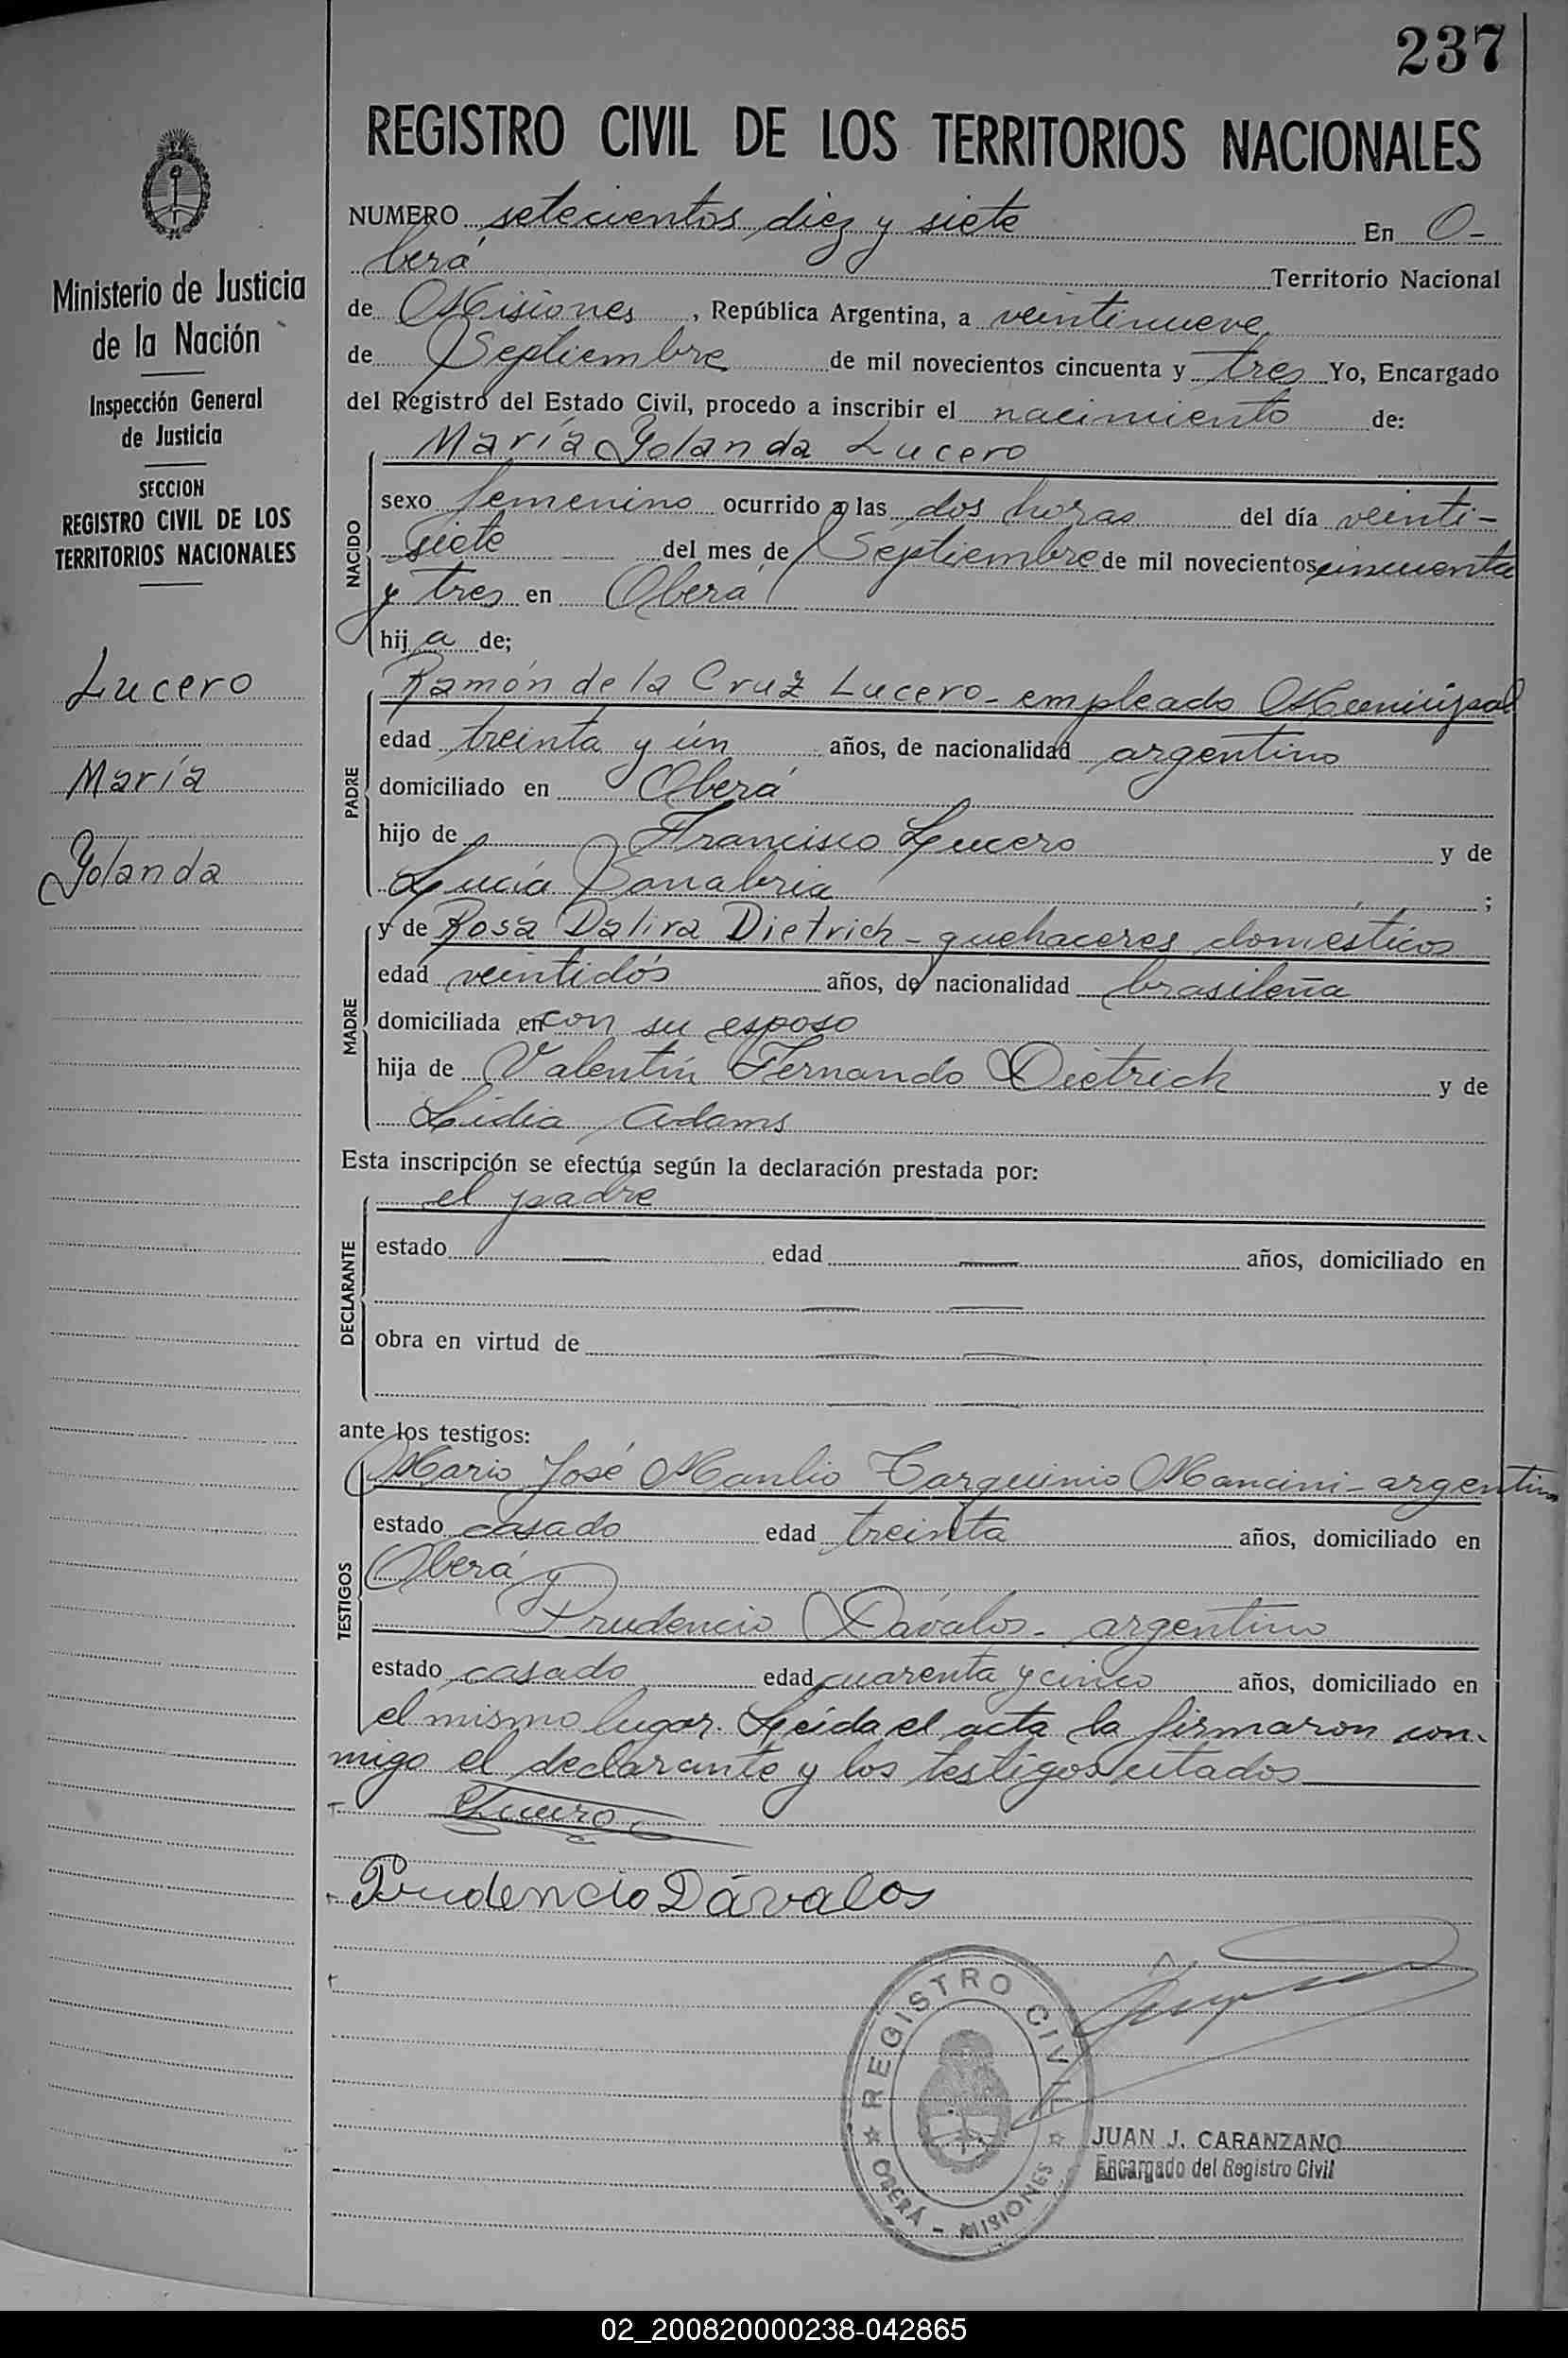 237
REGISTRO CIVIL DE LOS TERRITORIOS NACIONALES
Ministerio de Justicia
de la Nación
Inspección General
de Justicia
SECCION
REGISTRO CIVIL DE LOS
TERRITORIOS NACIONALES
Lucero
María
Yolanda
NUMERO setecientos diez y siete En O-
berá Territorio Nacional
de Misiones, República Argentina, a veintinueve
de Septiembre de mil novecientos cincuenta y tres Yo, Encargado
del Registro del Estado Civil, procedo a inscribir el nacimiento de:
NACIDO
María Yolanda Lucero
sexo femenino ocurrido a las dos horas del día veinti-
siete del mes de Septiembre de mil novecientos cincuenta
y tres en Oberá
hija de;
PADRE
Ramón de la Cruz Lucero - empleado Municipal
edad treinta y un años, de nacionalidad argentino
domiciliado en Oberá
hijo de Francisco Lucero y de
Lucía Sanabria ;
MADRE
y de Rosa Dalira Dietrich - quehaceres domésticos
edad veintidós años, de nacionalidad brasileña
domiciliada en con su esposo
hija de Valentín Fernando Dietrich y de
Lidia Adams
Esta inscripción se efectúa según la declaración prestada por:
DECLARANTE
el padre
estado — edad — años, domiciliado en
— —
obra en virtud de — —
— —
ante los testigos:
TESTIGOS
Mario José Manlio Tarquinio Mancini - argentino
estado casado edad treinta años, domiciliado en
Oberá y
Prudencio Dávalos - argentino
estado casado edad cuarenta y cinco años, domiciliado en
el mismo lugar. Leída el acta la firmaron con-
migo el declarante y los testigos citados
Lucero
Prudencio Dávalos
REGISTRO CIVIL
OBERÁ - MISIONES
JUAN J. CARANZANO
Encargado del Registro Civil
02_200820000238-042865